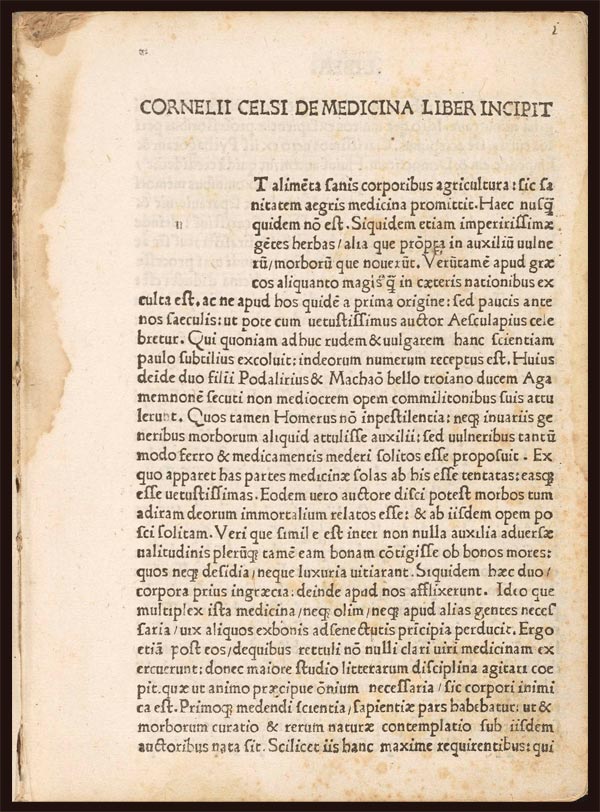 CORNELII CELSI DE MEDICINA LIBER INCIPIT
T alimēta sanis corporibus agricultura: sic sa
nitatem aegris medicina promittit. Haec nusq̄
quidem nō est. Siquidem etiam imperitissimæ
gētes herbas/alia que prōpta in auxiliū uulne
rū/morborū que nouerūt. Verūtamē apud græ
cos aliquanto magis q̄ in cæteris nationibus ex
culta est. ac ne apud hos quidē a prima origine: sed paucis ante
nos saeculis: ut pote cum uetustissimus auctor Aesculapius cele
bretur. Qui quoniam adhuc rudem & uulgarem hanc scientiam
paulo subtilius excoluit: indeorum numerum receptus est. Huius
deīde duo filii Podalirius & Machaō bello troiano ducem Aga
memnonē secuti non mediocrem opem commilitonibus suis attu
lerunt. Quos tamen Homerus nō inpestilentia: neq; inuariis ge
neribus morborum aliquid attulisse auxilii: sed uulneribus tantū
modo ferro & medicamentis mederi solitos esse proposuit. Ex
quo apparet has partes medicinæ solas ab his esse tentatas: easq;
esse uetustissimas. Eodem uero auctore disci potest morbos tum
adiram deorum immortalium relatos esse: & ab iisdem opem po
sci solitam. Veri que simile est inter non nulla auxilia aduersæ
ualitudinis plerūq; tamē eam bonam cōtigisse ob bonos mores:
quos neq; desidia/neque luxuria uitiarant. Siquidem hæc duo/
corpora prius ingræcia: deinde apud nos afflixerunt. Ideo que
multiplex ista medicina/neq; olim/neq; apud alias gentes necef
saria/uix aliquos exbonis adsenectutis pricipia perducit. Ergo
etiā post eos/dequibus rettuli nō nulli clari uiri medicinam ex
ercuerunt: donec maiore studio litterarum disciplina agitari coe
pit. quæ ut animo præcipue ōnium necessaria/sic corpori inimi
ca est. Primoq; medendi scientia/sapientiæ pars habebatur: ut &
morborum curatio & rerum naturæ contemplatio sub iisdem
auctoribus nata sit. Scilicet iis hanc maxime requirentibus: qui